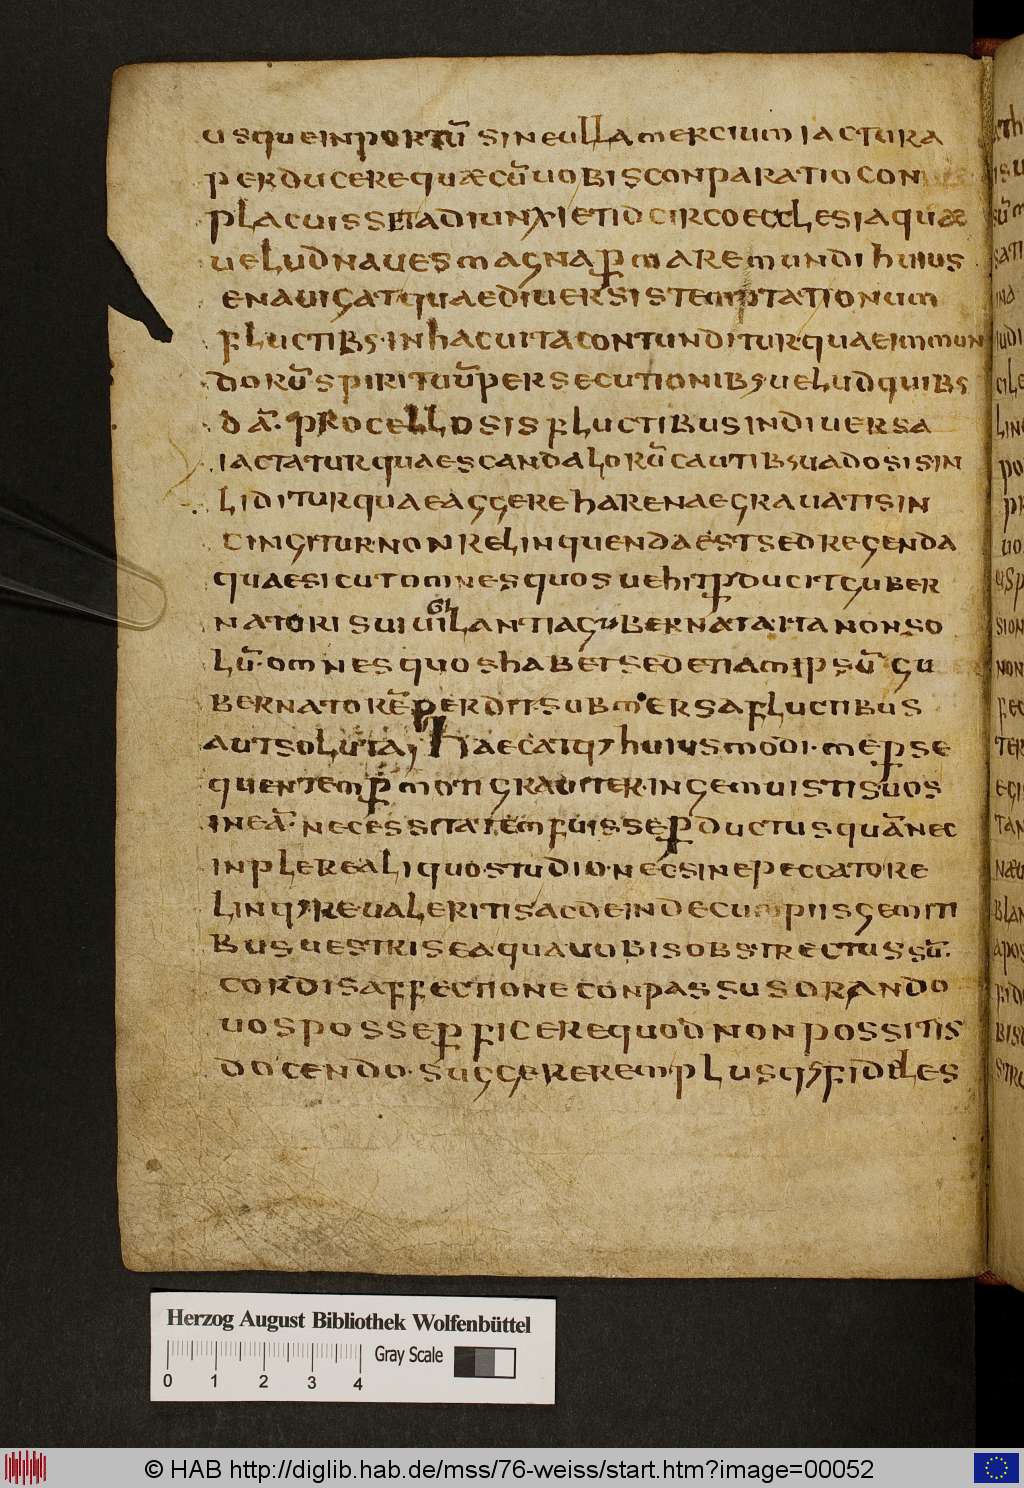 usque in portū sine ulla mercium iactura
perducere quæ cū uobis conparatio con
placuisset adiunxi et id circo ecclesia quæ
uelud naues magna ꝑ mare mundi huius
enauigat quae diuersis temptationum
fluctibꝫ in hac uita contunditur quae inmun
dorū spirituū persecutionibꝫ uelud quibꝫ
dā. procellosis fluctibus in diuersa
iactatur quae scandalorū cautibꝫ uadosis in
liditur quae aggere harenae grauatis in
cingitur non relinquenda est sed regenda
quae sicut omnes quos uehit ꝓducit guber
natoris sui uigilantia gubernata ita non so
lū. omnes quos habet sed etiam ipsū gu
bernatorē perdit submersa fluctibus
aut soluta; Haec atqꝫ huiusmodi. me ꝑse
quentem ꝑmoti grauiter. ingemuistis uos
in eā. necessitatem fuisse ꝑductus quā nec
inplere aliquo studio nec sine peccato re
linqꝫre ualeritis ac deinde cum piis gemiti
bus uestris ea qua uobis obstrectus sū.
cordis affectione conpassus orando
uos posse ꝑficere quod non possitis
docendo. suggererem plusqꝫ fideles
Herzog August Bibliothek Wolfenbüttel
0 1 2 3 4 Gray Scale
© HAB http://diglib.hab.de/mss/76-weiss/start.htm?image=00052